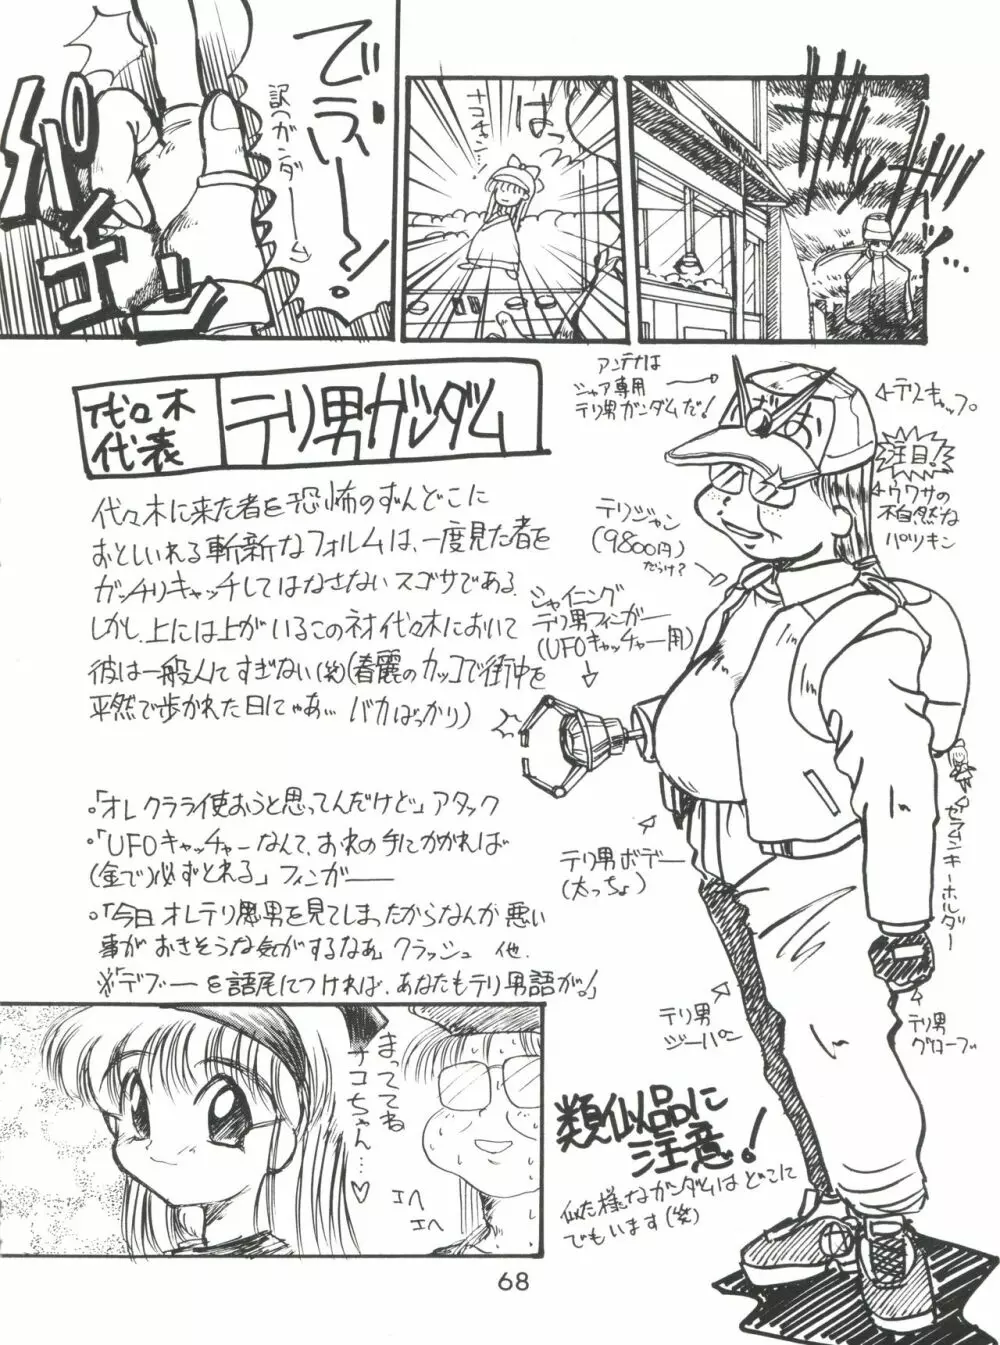 はっ
ナコチャン…
でラ〜〜!
訳つガンダー
パチン
代々木
代表
テリ男ガンダム
代々木に来た者を恐怖のずんどこに
おとしいれる斬新なフォルムは、一度見た者を
ガッチリキャッチしてはなさないスゴサである。
しかし、上には上がいるこのネオ代々木において
彼は一般人てすぎない(笑)(春麗のカッコで街中を
平然で歩かれた日にゃあ… バカばっかり)
。「オレクラライ使おうと思ってんだけど」アタック
。「UFOキャッチャーなんて、おれの手にかかれば
(金で)必ずとれる」フィンガー
。「今日オレテリ男を見てしまったからなんか悪い
事がおきそうな気がするなあ」クラッシュ 他.
※「デブー」を語尾につければ、あなたもテリ男語が。」
アンテナは
シャア専用
テリ男ガンダムだ!
テリキャップ
注目!
ウワサの
不自然な
パツキン
テリジャン
(9800円)
だっけ?
シャイニング
テリ男フィンガー
(UFOキャッチャー用)
セラムンキーホルダー
テリ男ボデー
(太っちょ)
テリ男
ジーパン
テリ男
グローブ
類似品に
注意!
似た様なガンダムはどこに
でもいます(笑)
まっててね
ナコちゃん…♡
エヘ
エヘ
68